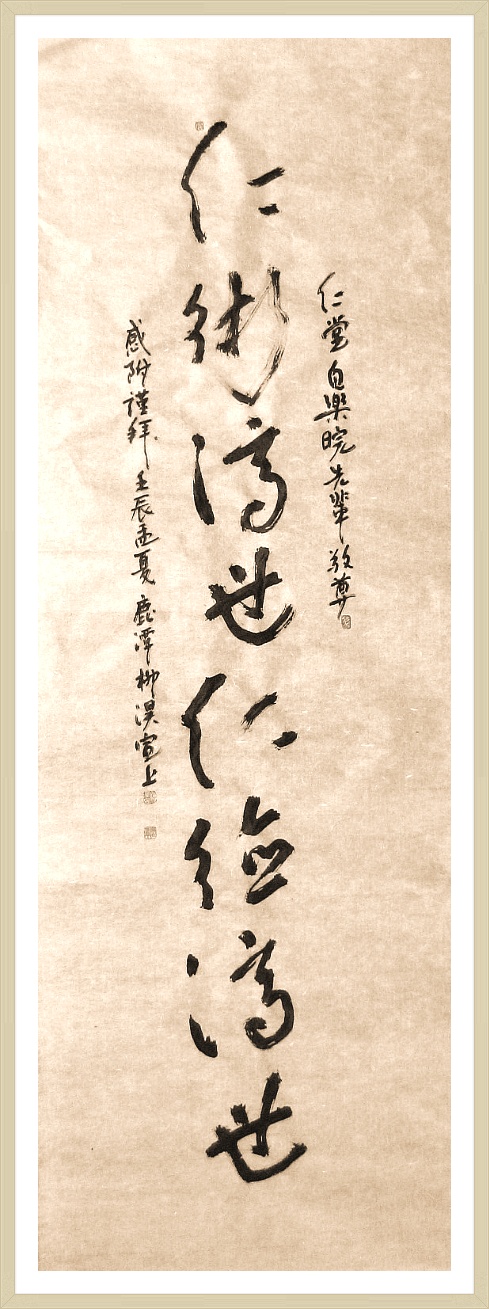 仁堂 自樂晥先輩 敬尊
仁術濟世仁德濟世
感附謹拜 壬辰孟夏 鹿潭 柳淏宣上